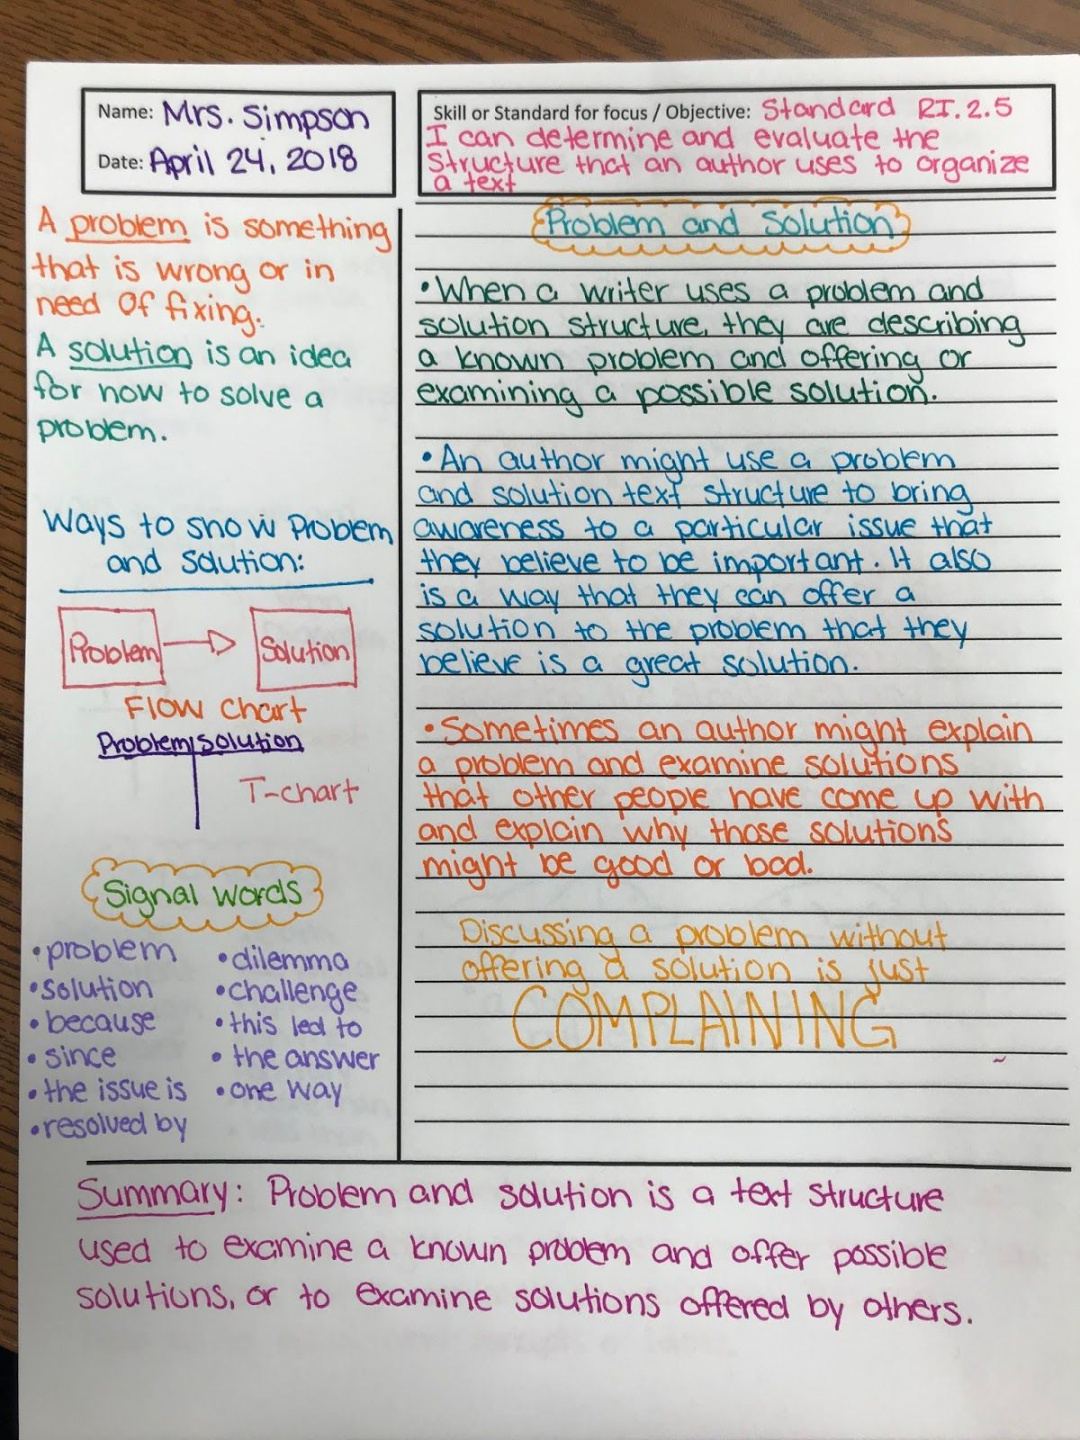 Name: Mrs. Simpson
Date: April 24, 2018
Skill or Standard for focus / Objective: Standard RI.2.5
I can determine and evaluate the
structure that an author uses to organize
a text
A problem is something
that is wrong or in
need of fixing.
A solution is an idea
for how to solve a
problem.
Ways to show Problem
and Solution:
Problem → Solution
Flow chart
Problem|solution
T-chart
Signal words
•problem
•solution
•because
•since
•the issue is
•resolved by
•dilemma
•challenge
•this led to
•the answer
•one way
Problem and Solution
•When a writer uses a problem and
solution structure, they are describing
a known problem and offering or
examining a possible solution.
•An author might use a problem
and solution text structure to bring
awareness to a particular issue that
they believe to be important. It also
is a way that they can offer a
solution to the problem that they
believe is a great solution.
•Sometimes an author might explain
a problem and examine solutions
that other people have come up with
and explain why those solutions
might be good or bad.
Discussing a problem without
offering a solution is just
COMPLAINING
Summary: Problem and solution is a text structure
used to examine a known problem and offer possible
solutions, or to examine solutions offered by others.